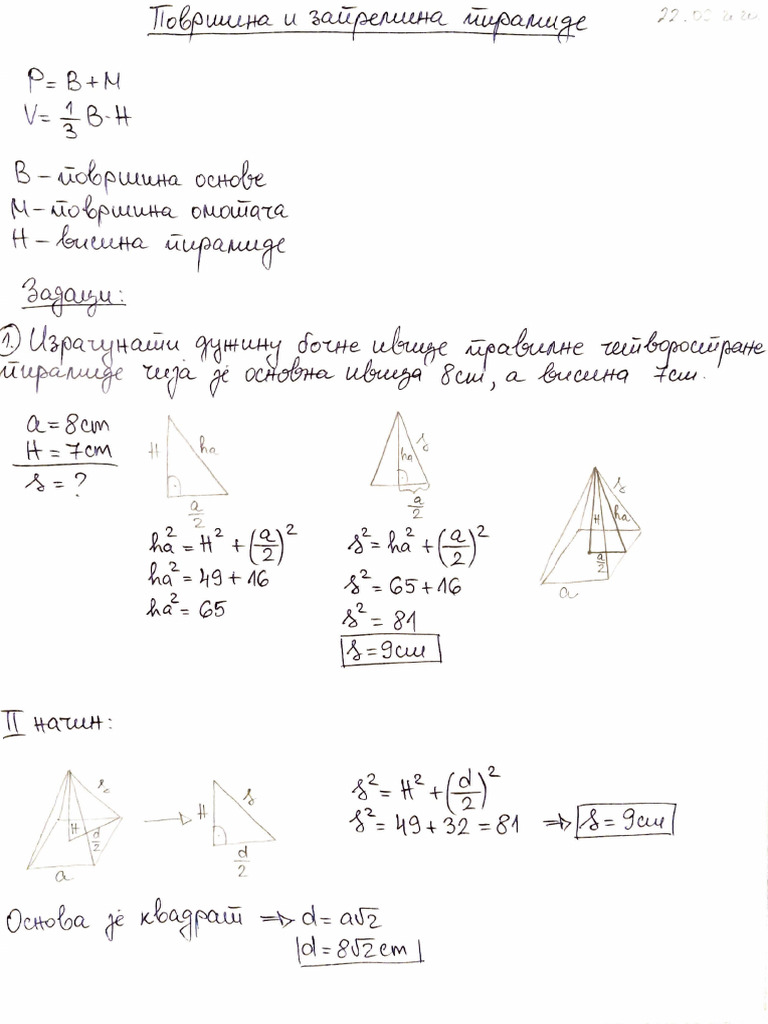 Површина и запремина пирамиде
P = B + M
V = 1/3 B·H
B – површина основе
M – површина омотача
H – висина пирамиде
Задаци:
1. Израчунати дужину бочне ивице правилне четворостране
пирамиде чија је основна ивица 8cm, а висина 7cm.
a = 8cm
H = 7cm
s = ?
H ha a/2
ha² = H² + (a/2)²
ha² = 49 + 16
ha² = 65
s ha a/2
s² = ha² + (a/2)²
s² = 65 + 16
s² = 81
s = 9cm
s H ha a/2 a
II начин:
s H d/2 a → H s d/2
s² = H² + (d/2)²
s² = 49 + 32 = 81 ⇒ s = 9cm
Основа је квадрат ⇒ d = a√2
d = 8√2 cm